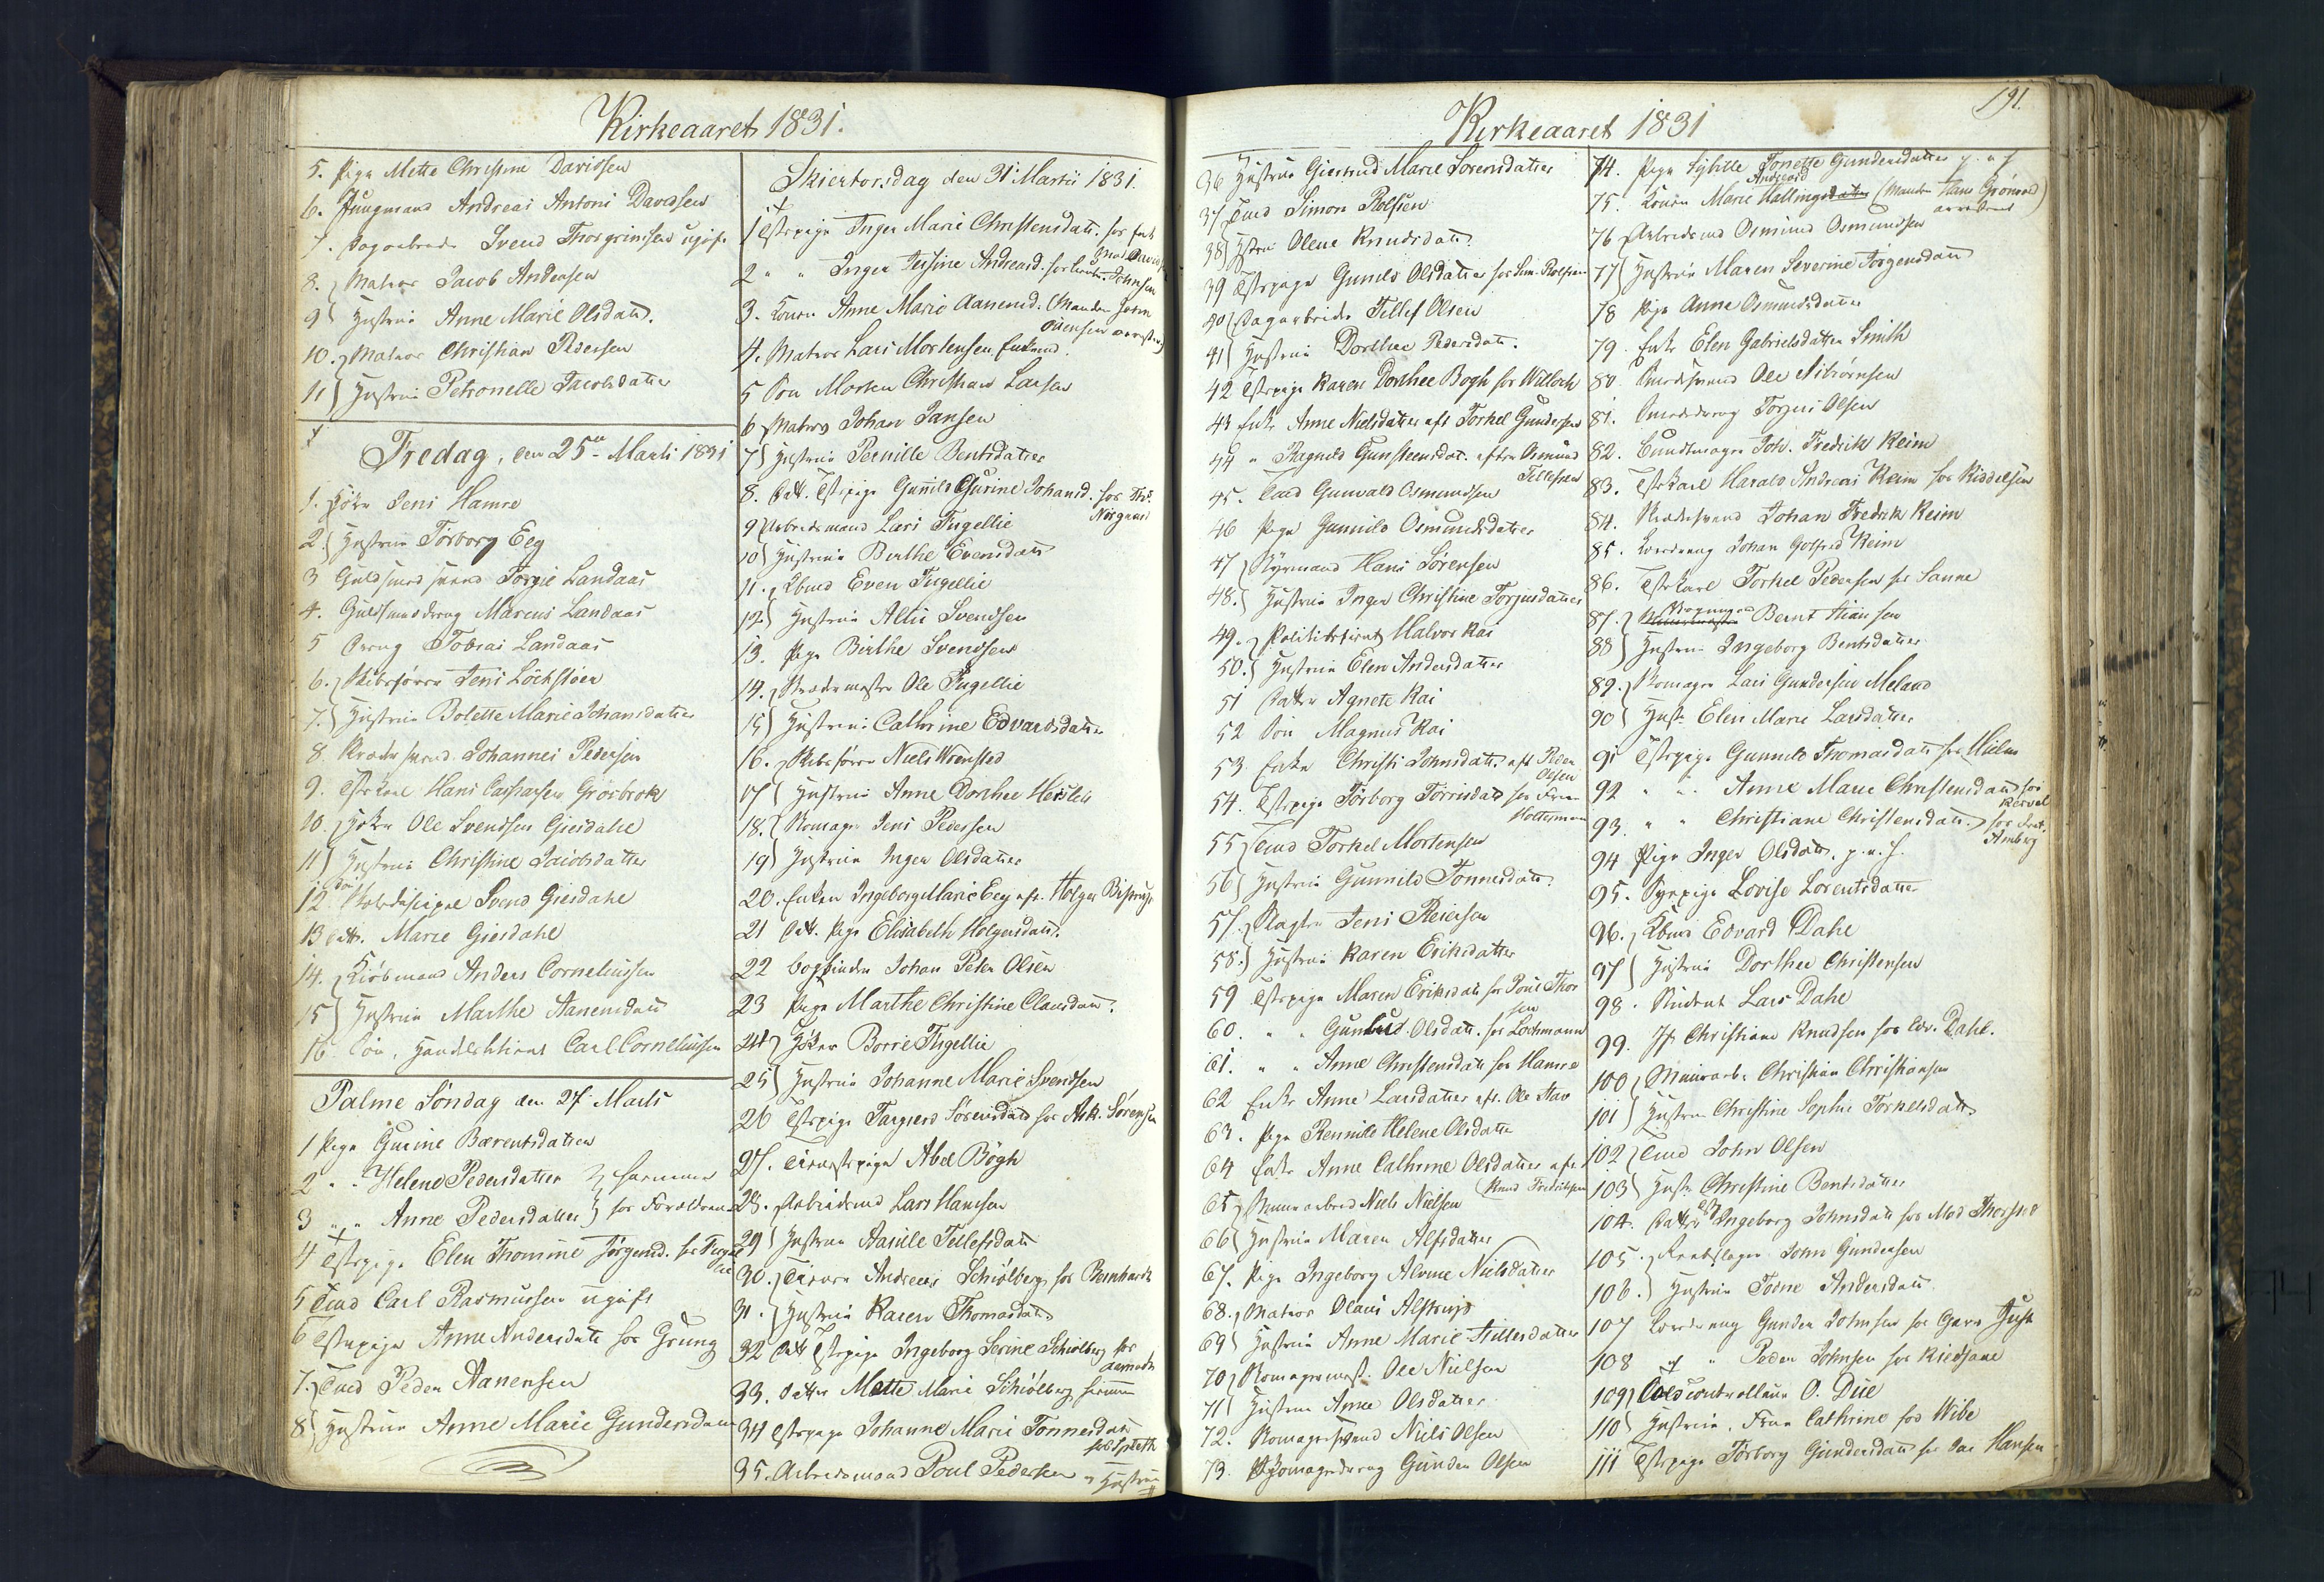 Kirkeaaret 1831.
5. Pige Mette Christine Davidsen
6. Jungmand Andreas Antoni Davidsen
7. Dagarbeider Svend Thorgrimsen ugift
8. Matros Jacob Andersen
9 Hustrue Anne Marie Olsdatt.
10. Matros Christian Pedersen
11 Hustrue Petronelle Jacobsdatter
Fredag, den 25de Marti 1831
1. Høker Jens Hamre
2. Hustrue Torborg Eeg
3 Guldsmedsvend Torgie Landaas
4. Guldsmeddreng Marcus Landaas
5 Dreng Tobias Landaas
6. Skibsfører Jens Löchstöer
7. Hustrue Bolette Marie Johansdatter
8. Skrædersvend Johannes Pedersen
9. Tstkarl Hans Casparsen Grösbrok
10. Høker Ole Svendsen Giesdahl
11 Hustrue Christine Jacobsdatter
12 Søn Skoledisipel Svend Giesdahl
13 Datt. Marie Giesdahl
14. Kiöbmand Anders Corneliussen
15 Hustrue Marthe Aanensdatt
16. Søn, Handelsbetient Carl Corneliussen
Palme Söndag den 27 Marts
1 Pige Gurine Bærentsdatter
2 " " Helene Pedersdatter } hiemme
3 " " Anne Pedersdatter } hos Forældrene
4 Tstpige Elen Thomine Jörgensd. hos Tugellie
5 Tmd Carl Rasmussen ugift
6 Tstepige Anne Andersdatt hos Grung
7. Tmd Peder Aanensen
8 Hustrue Anne Marie Gundersdatter
Skiertorsdag den 31 Martii 1831.
1 Tstepige Inger Marie Christensdatt. hos Enk
Mad Davids
2 " " Inger Tersine Andreasd. hos Johnsen
3. Konen Anne Marie Aanensd. (Manden John
Olensen arrestere)
4. Matros Lars Mortensen Enkemd.
5 Søn Morten Christian Larsen
6 Matros Johan Jansen
7 Hustrue Pernille Bentsdatter
8. Datt. Tstpige Gunnild Gurine Johansd. hos Ths.
Nörgaard
9 Arbeidsmand Lars Tugellie
10 Hustrue Birthe Evensdatt
11. Kbmd Even Tugellie
12 Hustrue Altie Svendsen
13. Pige Birthe Svendsen
14. Skrædermester Ole Tugellie
15 Hustrue Cathrine Edvardsdatter
16. Skibsfører Niels Wrensted
17 Hustrue Anne Dorthee Herslew
18. Skomager Jens Pedersen
19 Hustrue Inger Olsdatter
20. Enken Ingeborg Marie Eeg eft. Holger Bistrup
21 Datt. Pige Elisabeth Holgersdatt.
22 Bogbinder Johan Peter Olsen
23 Pige Marthe Christine Clausdatt.
24 Höker Borre Tugellie
25 Hustrue Johanne Marie Svendsen
26 Tstpige Targierd Sörensdatt hos Ask. Sörensen
27. Tienestepige Abel Bögh
28. Arbeidsmd Lars Hansen
29 Hustrue Aasille Tellefsdatt
30. Andreas Schiölberg hos Bernhardt
31. Hustrue Karen Thomasdatt
32 Datt Tstpige Ingeborg Serine Schiölberg hos
33. Datter Mette Marie Schiölberg hiemme
34 Tstpige Johanne Marie Tonnesdatt
hos Spleth
35. Arbeidsmand Poul Pedersen Hustrue
191.
Kirkeaaret 1831
36 Hustrue Giertrud Marie Sorensdatter
37 Tmd Simon Rolfsen
38 Hstrue Olene Knudsdatt.
39 Tstepige Gunild Olsdatter hos Sim. Rolfsen
40 Dagarbeider Tellef Olsen
41 Hustrue Dorthee Pedersdatt.
42 Tstpige Karen Dorthee Bogh hos Willoch
43 Enke Anne Nielsdatter eft Torkel Gundersen
44 " Ragnild Gunsteensdat. efter Osmund
Tellefsen
45. Tmd Gunvald Osmundsen
46 Pige Gunnild Osmundsdatter
47 Styrmand Hans Sörensen
48. Hustrue Inger Christine Torjusdatter
49. Politibetient Halvor Kai
50. Hustrue Elen Andersdatter
51 Datter Agnete Kai
52 Søn Magnus Kai
53. Enke Christi Johnsdatt. eft Peder
Olsen
54. Tstepige Torborg Torrisdatt hos Frue
Holterman
55 Tmd Torkel Mortensen
56 Hustrue Gunnild Tonnesdatt.
57. Slagter Jens Reiersen
58. Hustrue Karen Eriksdatter
59 Tstepige Maren Eriksdatt hos Poul Thor
sen
60. " " Gunild Olsdatt. hos Lochmann
61. " " Anne Christensdatt hos Hamre
62 Enke Anne Larsdatter eft. Ole Hav
63. Pige Rennild Helene Olsdatter
64 Enke Anne Cathrine Olsdatter efter
Knud Fredriksen
65 Muurarbeid Niels Nielsen
66 Hustrue Maren Alfsdatter
67. Pige Ingeborg Alvine Nielsdatter
68. Matros Olaus Alstrup
69 Hustrue Anne Marie Tellesdatter
70 Skomagermest. Ole Nielsen
71 Hustrue Anne Olsdatter
72. Skomagersvend Niels Olsen
73. Skomagerdreng Gunder Olsen
74. Pige Sybille Tonette Gundersdatter p. a. f
Andreasd
75. Konen Marie Hallingsdatter (Manden Hans Grönvold
arresteret)
76 Arbeidsmd Osmund Osmundsen
77 Hustrue Maren Severine Torgensdatt
78 Pige Anne Osmundsdatter
79. Enke Elen Gabrielsdatter Smith
80. Smedsvend Ole Aibiörnsen
81. Smeddreng Torjus Olsen
82. Bundtmager Joh. Fredrik Keim
83. Tstkarl Harald Andreas Keim hos Riddelsen
84. Skrædersvend Johan Fredrik Keim
85. Læredreng Johan Gotfred Keim
86. Tstkarl Torkel Pedersen hos Sanne
87. Bernt Hansen
88 Hustrue Ingeborg Bentsdatter
89. Skomager Lars Gundersen Meland
90 Hustr. Elen Marie Larsdatter
91 Tstpige Gunnild Thomasdatt hos Hielm
92 " " Anne Marie Christensdatt hos
93. " " Christiane Christensdatt. hos
Amberg
94 Pige Inger Olsdatt. p. a. f.
95. Sypige Lovise Lorentsdatter
96. Kbmd Edvard Dahl
97 Hustrue Dorthee Christensen
98. Student Lars Dahl
99. Jf. Christiane Knudsen hos Edv. Dahl.
100 Muurarb. Christian Christiansen
101 Hustrue Christine Sophie Torkelsdatt
102 Tmd John Olsen
103 Hustr. Christine Bentsdatter
104. Datter Ingeborg Johnsdatt hos Mad Thorsne
105. Reebslager John Gundersen
106. Hustrue Tone Andersdatt
107 Læredreng Gunder Johnsen hos Garv Juhl
108 " " Peder Johnsen hos Riedsane
109 Toldcontrolleur O. Due
110 Hustrue, Frue Cathrine fød Wibe
111 Tstpige Torborg Gundersdatt hos Hansen